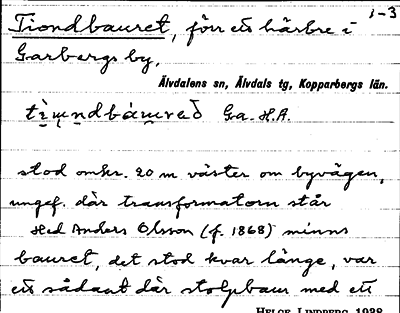 Tiondbauret, förr ett härbre i 1-3
Garbergs by.
Älvdalens sn, Älvdals tg, Kopparbergs län.
Ga. H.A.
stod omkr. 20 m väster om byvägen,
ungef. där transformatorn står
Hed Anders Olsson (f. 1868) minns
bauret, det stod kvar länge, var
ett sådant där stolpbaur med ett
HELGE LINDBERG 1938